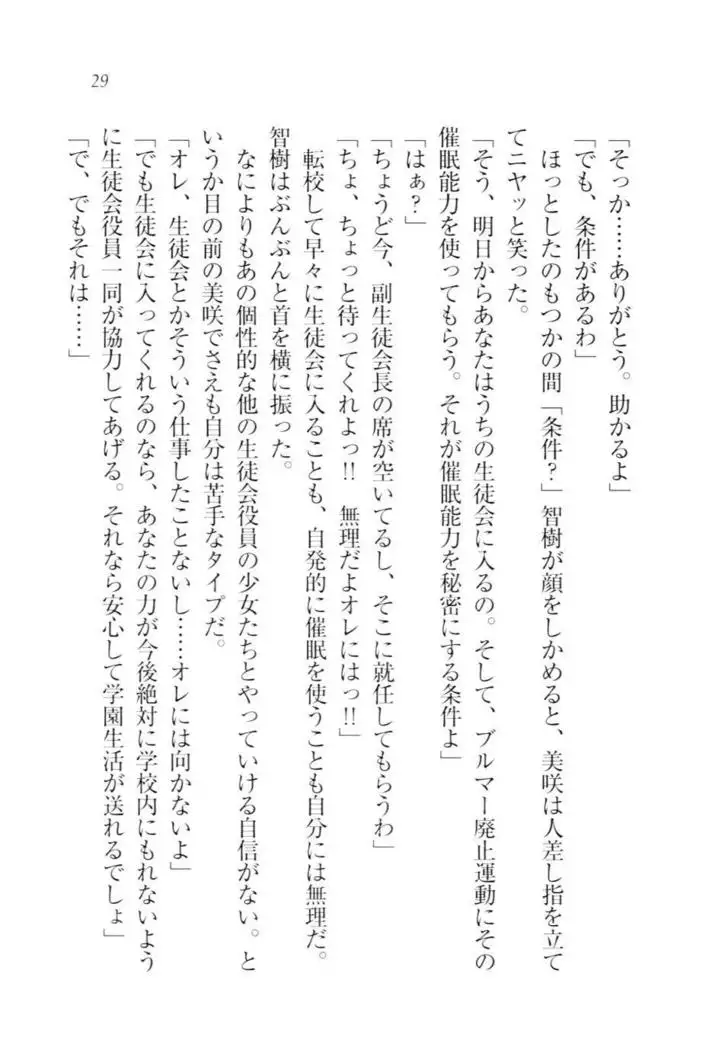 29
「そっか……ありがとう。助かるよ」
「でも、条件があるわ」
　ほっとしたのもつかの間「条件？」智樹が顔をしかめると、美咲は人差し指を立て
てニヤッと笑った。
「そう、明日からあなたはうちの生徒会に入るの。そして、ブルマー廃止運動にその
催眠能力を使ってもらう。それが催眠能力を秘密にする条件よ」
「はぁ？」
「ちょうど今、副生徒会長の席が空いてるし、そこに就任してもらうわ」
「ちょ、ちょっと待ってくれよっ!!　無理だよオレにはっ!!」
　転校して早々に生徒会に入ることも、自発的に催眠を使うことも自分には無理だ。
智樹はぶんぶんと首を横に振った。
　なによりもあの個性的な他の生徒会役員の少女たちとやっていける自信がない。と
いうか目の前の美咲でさえも自分は苦手なタイプだ。
「オレ、生徒会とかそういう仕事したことないし……オレには向かないよ」
「でも生徒会に入ってくれるのなら、あなたの力が今後絶対に学校内にもれないよう
に生徒会役員一同が協力してあげる。それなら安心して学園生活が送れるでしょ」
「で、でもそれは……」